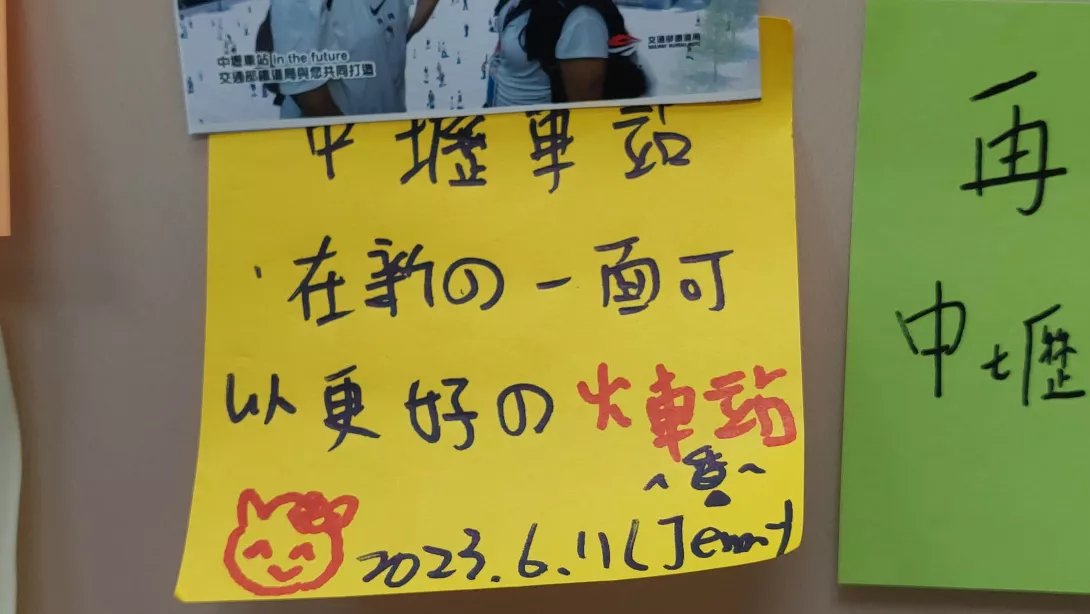 中壢車站 in the future
交通部鐵道局與您共同打造
交通部鐵道局
中壢車站
在新の一面可
以更好の火車站
2023.6.11(Jenny
再
中壢